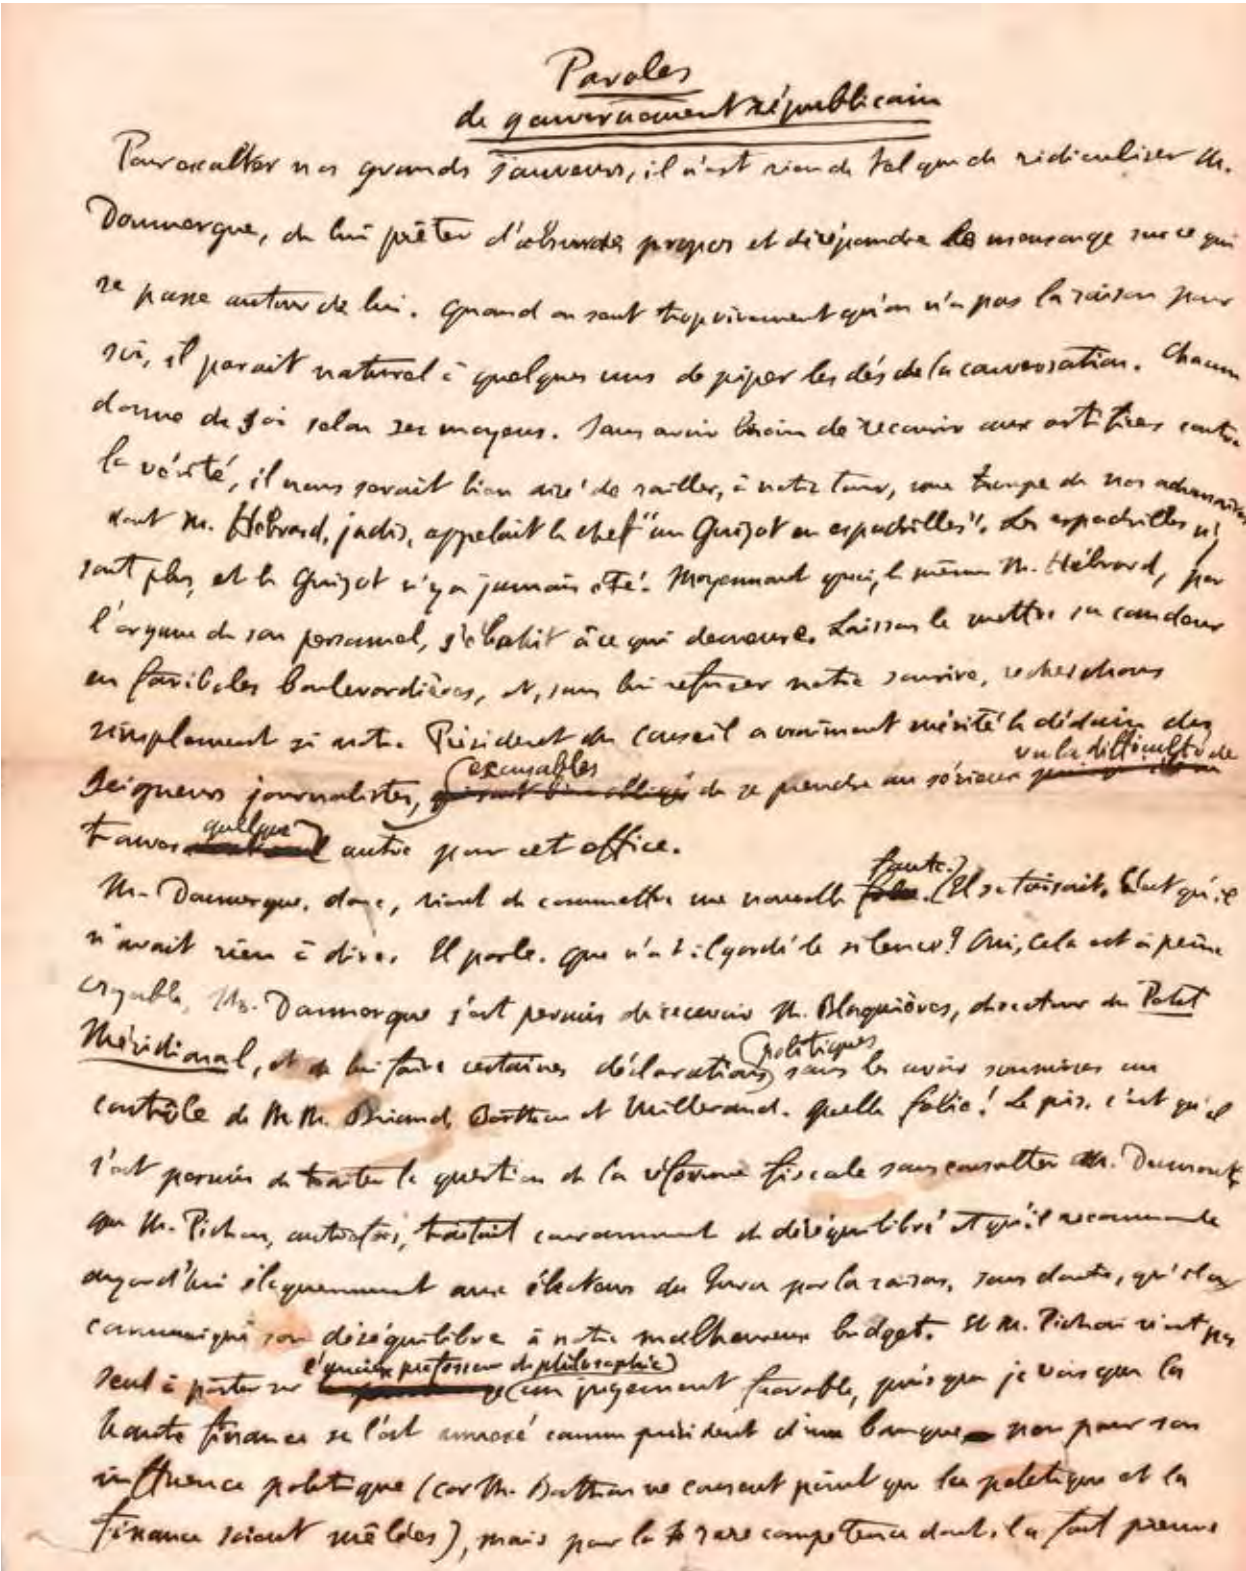 Paroles
de gouvernement républicain
Pour exalter nos grands sauveurs, il n'est rien de tel que de ridiculiser M.
Doumergue, de lui prêter d'absurdes propos et de répandre le mensonge sur ce qui
se passe autour de lui. Quand on sent trop vivement qu'on n'a pas la raison pour
soi, il paraît naturel à quelques uns de piper les dés de la conversation. Chacun
donne de soi selon ses moyens. Sans avoir besoin de recourir aux artifices contre
la vérité, il nous serait bien aisé de railler, à notre tour, une troupe de nos adversaires
dont M. Hébrard, jadis, appelait le chef "un Guizot en espadrilles". Les espadrilles n'y
sont plus, et le Guizot n'y a jamais été. Moyennant quoi, le même M. Hébrard, par
l'organe de son personnel, s'ébahit à ce qui demeure. Laissons le mettre sa candeur
en fariboles boulevardières, et, sans lui refuser notre sourire, recherchons
simplement si notre Président du Conseil a vraiment mérité le dédain des
vu la difficulté de
excusables
Seigneurs journalistes, de se prendre au sérieux
quelque
trouver autre pour cet office.
faute.
M. Doumergue, donc, vient de commettre une nouvelle Il se taisait. C'est qu'il
n'avait rien à dire. Il parle. Que n'a t-il gardé le silence? Oui, cela est à peine
croyable, M. Doumergue s'est permis de recevoir M. Blaquières, directeur du Petit
politiques
Méridional, et de lui faire certaines déclarations sans les avoir soumises au
contrôle de MM. Briand, Barthou et Millerand. Quelle folie! Le pis, c'est qu'il
s'est permis de traiter la question de la réforme fiscale sans consulter M. Dumont,
que M. Pichon, autrefois, traitait couramment de déséquilibré et qu'il recommande
aujourd'hui éloquemment aux électeurs du Jura par la raison, sans doute, qu'il a
communiqué son déséquilibre à notre malheureux budget. Et M. Pichon n'est pas
l'ancien professeur de philosophie
seul à porter sur un jugement favorable, puisque je vois que la
haute finance se l'est annexé comme président d'une banque non pour son
influence politique (car M. Barthou ne consent point que la politique et la
finance soient mêlées), mais pour la rare compétence dont il a fait preuve